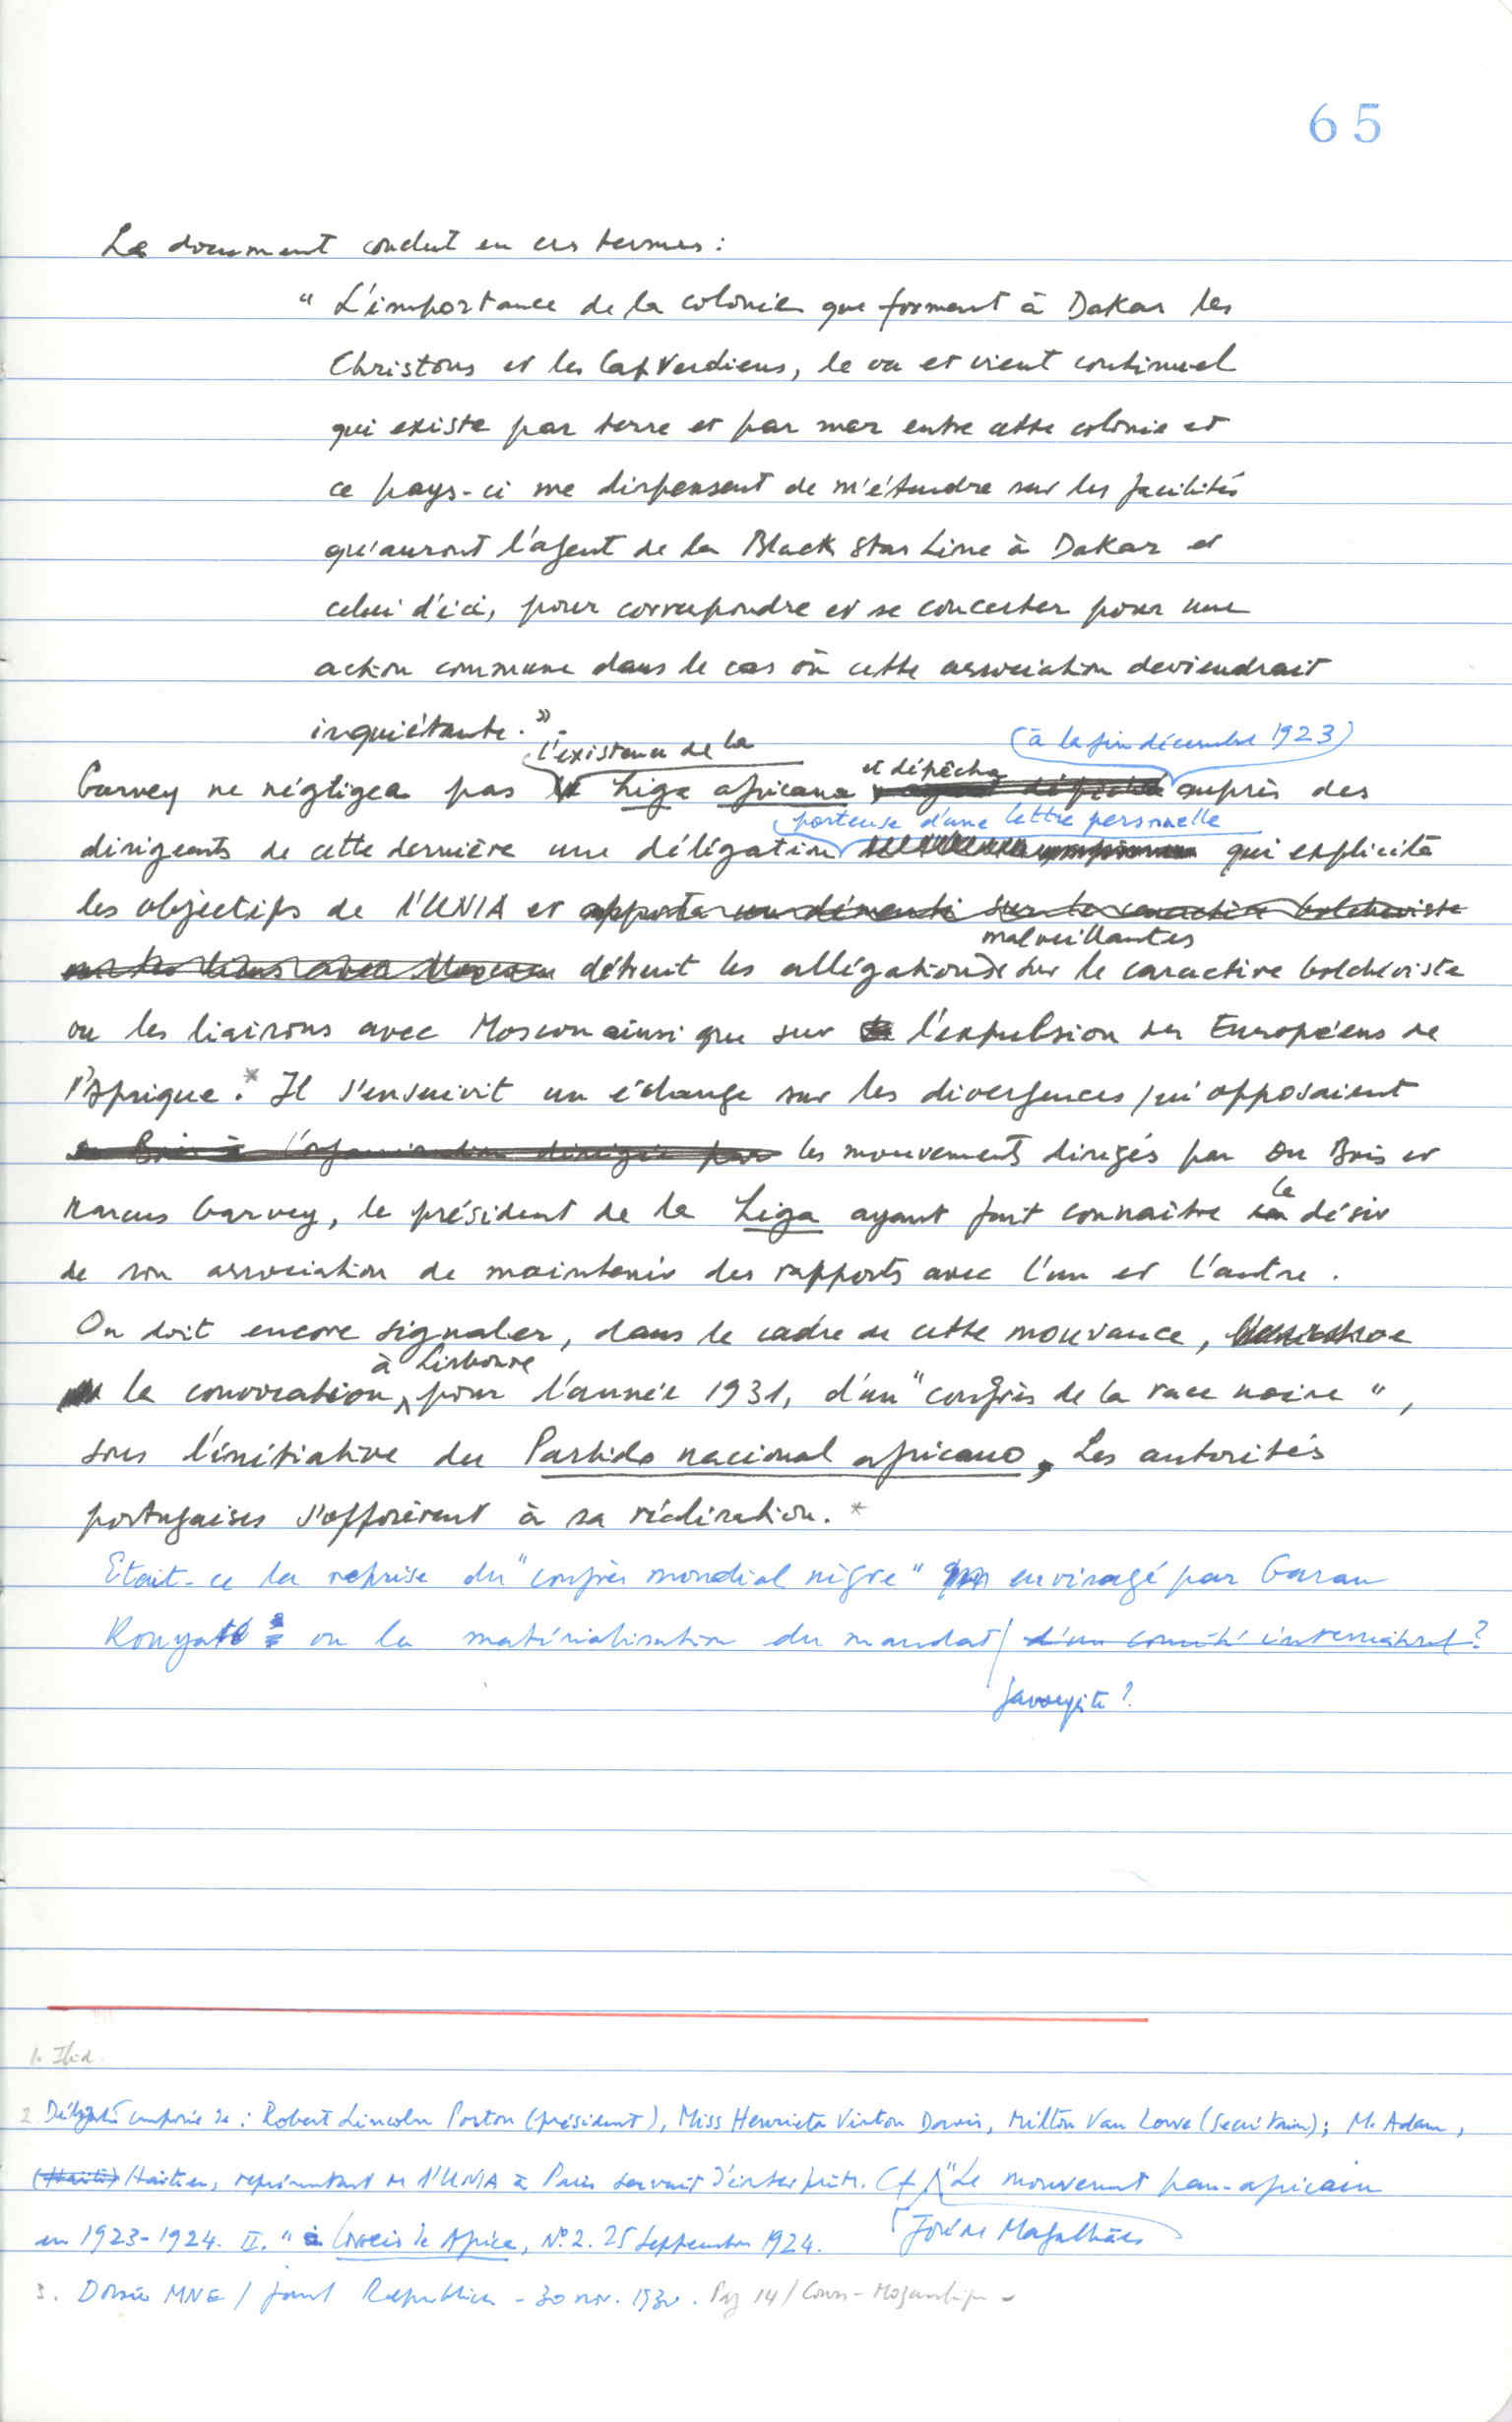 65
Le document conclut en ces termes :
" L'importance de la colonie que forment à Dakar les
Christons et les CapVerdiens, le va et vient continuel
qui existe par terre et par mer entre cette colonie et
ce pays-ci me dispensent de m'étendre sur les facilités
qu'auront l'agent de la Black Star Line à Dakar et
celui d'ici, pour correspondre et se concerter pour une
action commune dans le cas où cette association deviendrait
inquiétante."
l'existence de la (à la fin décembre 1923)
Garvey ne négligea pas Liga africana et dépêcha auprès des
porteuse d'une lettre personnelle
dirigeants de cette dernière une délégation qui explicita
les objectifs de l'UNIA et apporta un démenti sur le caractère bolcheviste
malveillantes
sur les liens avec Moscou détruit les allégations sur le caractère bolcheviste
ou les liaisons avec Moscou ainsi que sur l'expulsion des Européens de
l'Afrique.* Il s'ensuivit un échange sur les divergences qui opposaient
Du Bois à l'organisation dirigée par les mouvements dirigés par Du Bois et
Marcus Garvey, le président de la Liga ayant fait connaître le désir
de son association de maintenir des rapports avec l'un et l'autre.
On doit encore signaler, dans le cadre de cette mouvance,
à Lisbonne
la convocation, pour l'année 1931, d'un "congrès de la race noire",
sous l'initiative du Partido nacional africano. Les autorités
portugaises s'opposèrent à sa réalisation.*
Etait-ce la reprise du "congrès mondial nègre" envisagé par Garan
Kouyaté ou la matérialisation du mandat d'un comité international ?
garveyite ?
1. Ibid.
2 Délégation composée de : Robert Lincoln Poston (président), Miss Henrieta Vinton Davis, Milton Van Lowe (Secrétaire) ; M. Adam,
(Haïti) Haïtien, représentant de l'UNIA à Paris servait d'interprète. Cf "Le mouvement pan-africain
en 1923-1924. II." Correio de Africa, Nº 2. 25 Septembre 1924. José de Magalhães
3. Dossier MNE / Républica - 30 nov. 193 . Pag 14 /